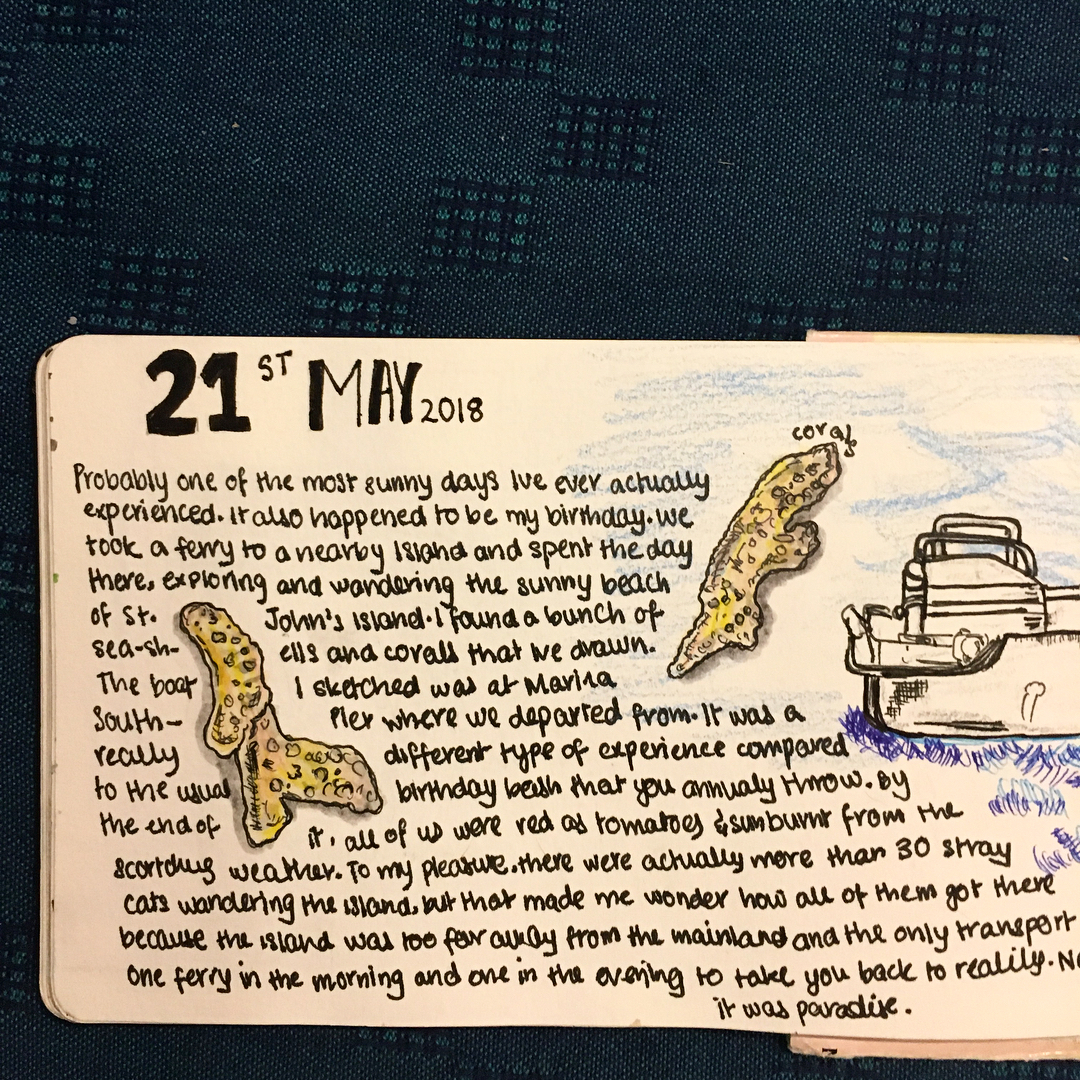 21ST MAY 2018
coral
Probably one of the most sunny days Ive ever actually
experienced. It also happened to be my birthday. We
took a ferry to a nearby Island and spent the day
there, exploring and wandering the sunny beach
of St. John's Island. I found a bunch of
sea-sh- ells and corals that Ive drawn.
The boat I sketched was at Marina
South- Pier where we departed from. It was a
really different type of experience compared
to the usual birthday bash that you annualy throw. By
the end of it, all of us were red as tomatoes & sunburnt from the
scortchug weather. To my pleasure, there were actually more than 30 stray
cats wandering the island, but that made me wonder how all of them got there
because the island was too far away from the mainland and the only transport
one ferry in the morning and one in the evening to take you back to reality.
it was paradise.